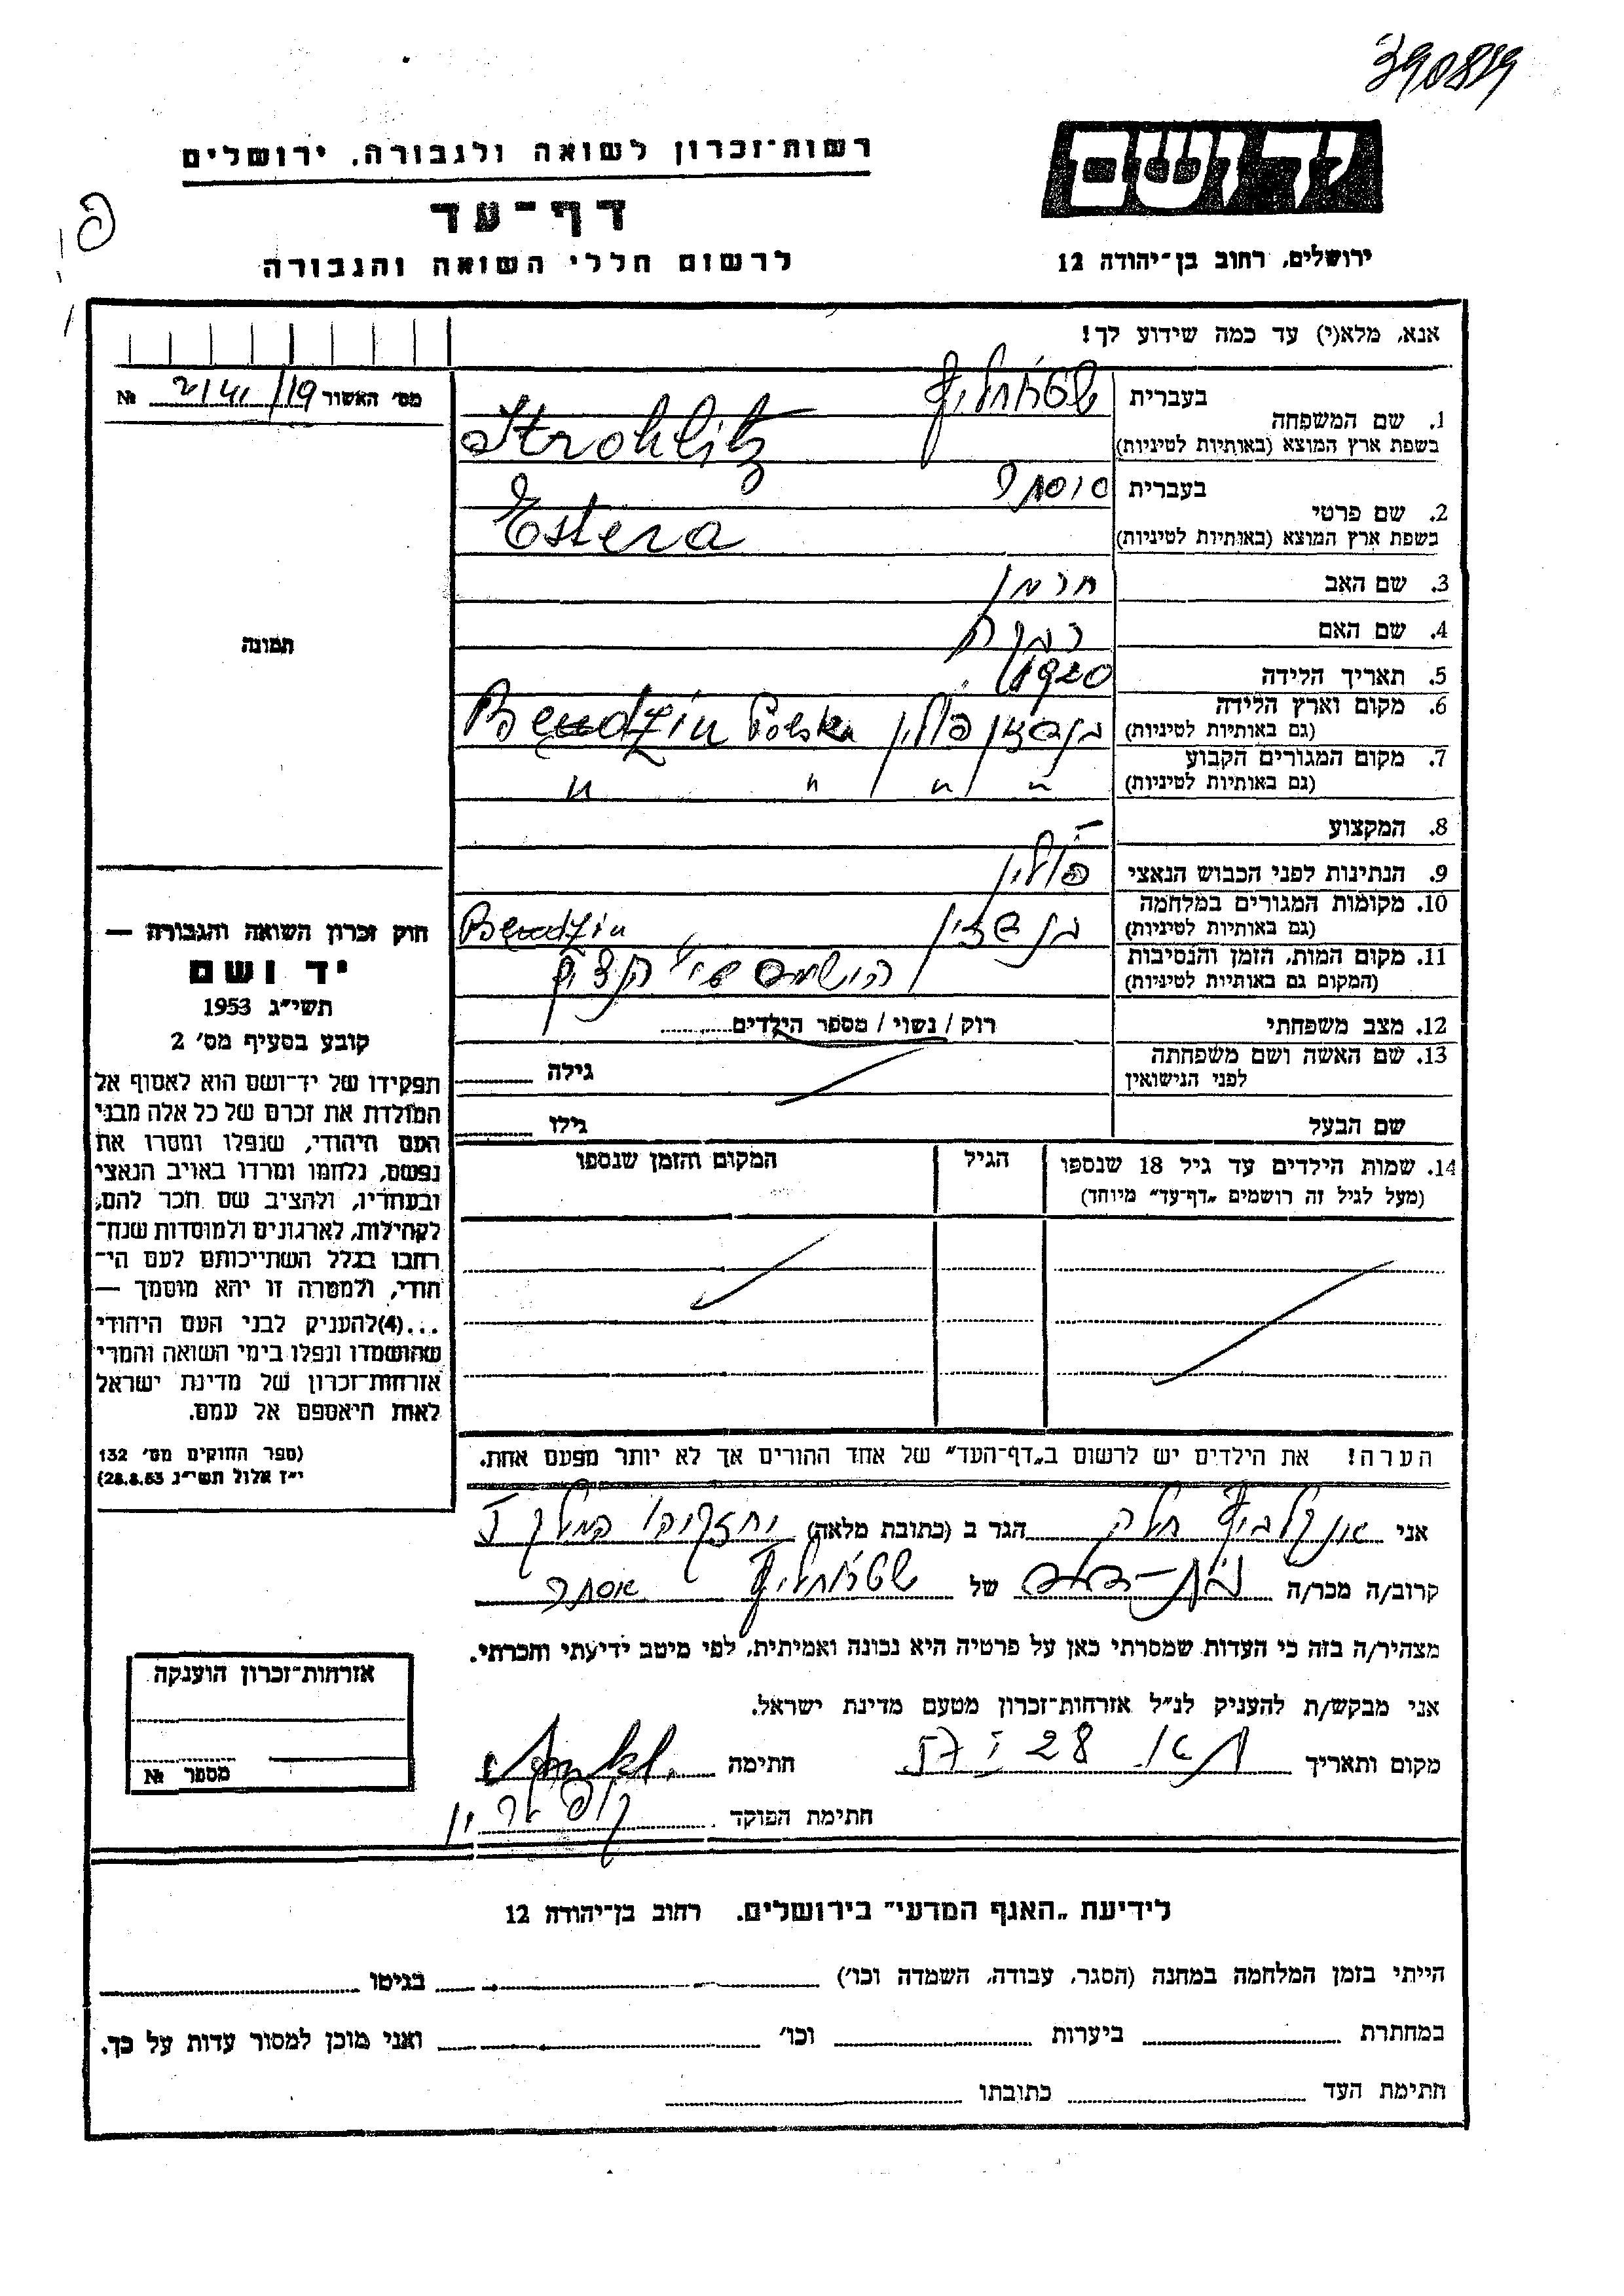 390839
יד ושם
רשות־זכרון לשואה ולגבורה, ירושלים
דף־עד
לרשום חללי השואה והגבורה
ירושלים, רחוב בן־יהודה 12
אנא, מלא(י) עד כמה שידוע לך!
מס׳ האשור № 
1. שם המשפחה
בעברית
בשפת ארץ המוצא (באותיות לטיניות)
Strohlitz
2. שם פרטי
בעברית
בשפת ארץ המוצא (באותיות לטיניות)
Estera
3. שם האב
4. שם האם
5. תאריך הלידה 1920
6. מקום וארץ הלידה
(גם באותיות לטיניות)
פולין Polska Bendzin
7. מקום המגורים הקבוע
(גם באותיות לטיניות)
" " " "
8. המקצוע –
9. הנתינות לפני הכבוש הנאצי פולין
10. מקומות המגורים במלחמה
(גם באותיות לטיניות)
Bendzin
11. מקום המות, הזמן והנסיבות
(המקום גם באותיות לטיניות)
12. מצב משפחתי רוק / נשוי / מספר הילדים
13. שם האשה ושם משפחתה
לפני הנישואין
גילה
שם הבעל גילו
14. שמות הילדים עד גיל 18 שנספו
(מעל לגיל זה רושמים „דף־עד״ מיוחד)
הגיל
המקום והזמן שנספו
הערה! את הילדים יש לרשום ב„דף־העד״ של אחד ההורים אך לא יותר מפעם אחת.
תמונה
חוק זכרון השואה והגבורה —
יד ושם
תשי״ג 1953
קובע בסעיף מס׳ 2
תפקידו של יד־ושם הוא לאסוף אל
המולדת את זכרם של כל אלה מבני
העם היהודי, שנפלו ומסרו את
נפשם, נלחמו ומרדו באויב הנאצי
ובעוזריו, ולהציב שם וזכר להם,
לקהילות, לארגונים ולמוסדות שנח־
רבו בגלל השתייכותם לעם הי־
הודי, ולמטרה זו יהא מוסמך —
...(4) להעניק לבני העם היהודי
שהושמדו ונפלו בימי השואה והמרי
אזרחות־זכרון של מדינת ישראל
לאות היאספם אל עמם.
(ספר החוקים מס׳ 132
י״ז אלול תשי״ג 28.8.53)
אני הגר ב (כתובת מלאה)
קרוב/ה מכר/ה של אסתר
מצהיר/ה בזה כי העדות שמסרתי כאן על פרטיה היא נכונה ואמיתית, לפי מיטב ידיעתי והכרתי.
אני מבקש/ת להעניק לנ״ל אזרחות־זכרון מטעם מדינת ישראל.
מקום ותאריך חתימה
חתימת הפוקד
אזרחות־זכרון הוענקה
מספר №
לידיעת „האגף המדעי״ בירושלים. רחוב בן־יהודה 12
הייתי בזמן המלחמה במחנה (הסגר, עבודה, השמדה וכו׳) בגיטו
במחתרת ביערות וכו׳ ואני מוכן למסור עדות על כך.
חתימת העד כתובתו